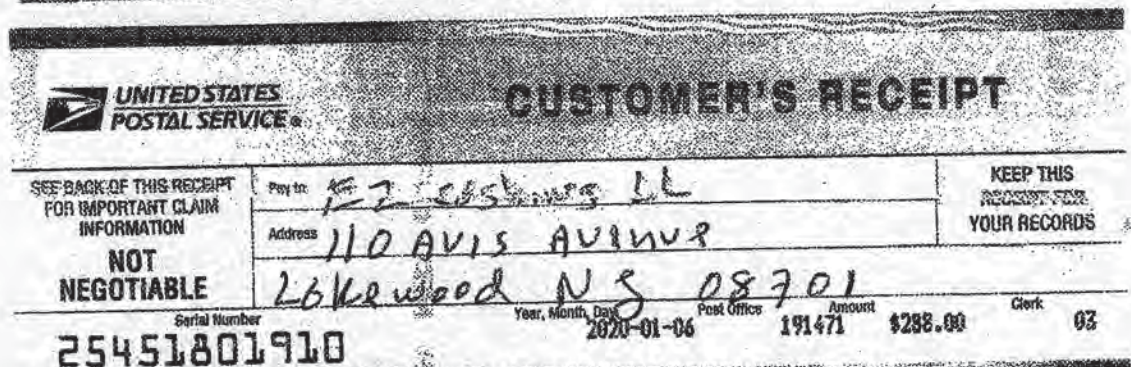 UNITED STATES
POSTAL SERVICE®
CUSTOMER'S RECEIPT
SEE BACK OF THIS RECEIPT
FOR IMPORTANT CLAIM
INFORMATION
NOT
NEGOTIABLE
Pay to EZ
Address 110 AVIS AVINUE
Lokewood NJ 08701
KEEP THIS
RECEIPT FOR
YOUR RECORDS
Serial Number
25451801910
Year, Month, Day
2020-01-06
Post Office
191471
Amount
$288.00
Clerk
03